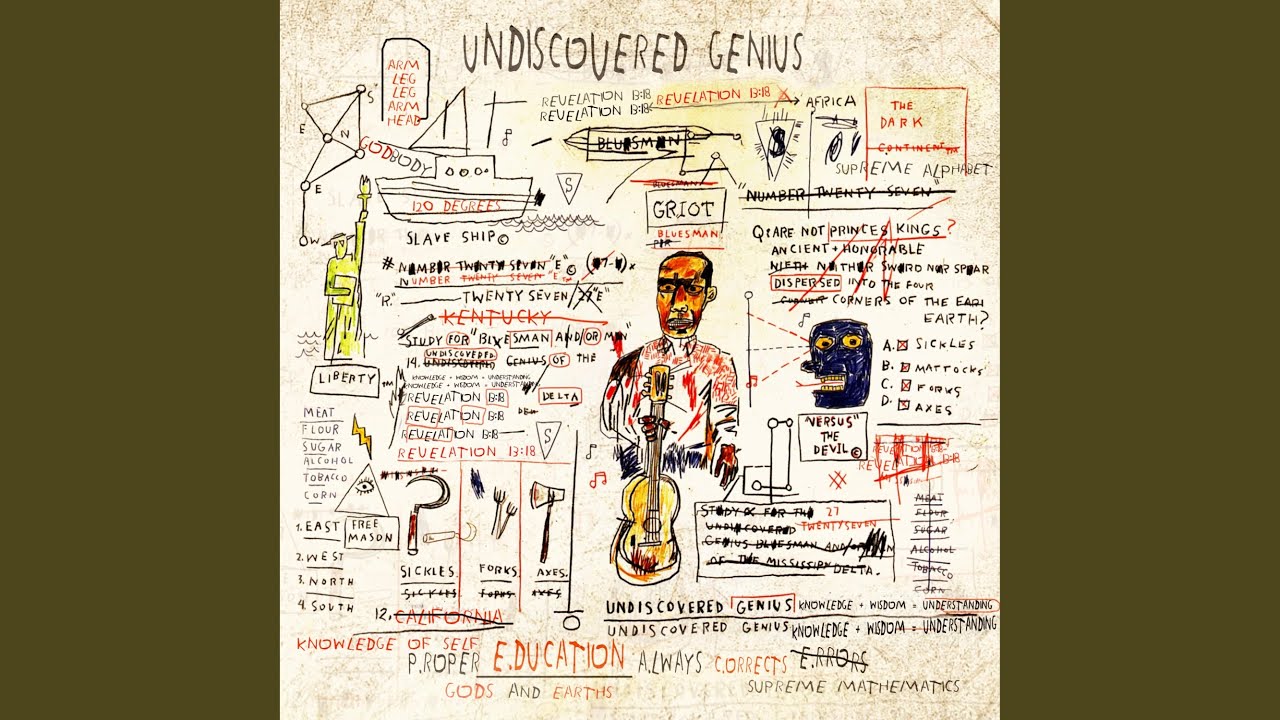 UNDISCOVERED GENIUS
ARM
LEG
LEG
ARM
HEAD
S
E
N
E
W
GODBODY
120 DEGREES
SLAVE SHIP©
S
REVELATION 13:18
REVELATION 13:18
REVELATION 13:18
AFRICA
BLUESMAN
S
THE
DARK
CONTINENT™
SUPREME ALPHABET
"NUMBER TWENTY SEVEN"
BLUESMAN
GRIOT
BLUESMAN
# NUMBER TWENTY SEVEN "E"©
NUMBER TWENTY SEVEN "E"™
"R." TWENTY SEVEN "E"
KENTUCKY
STUDY FOR "BLUESMAN AND/OR MAN"
UNDISCOVERED
14. UNDISCOVERED GENIUS OF THE
KNOWLEDGE + WISDOM = UNDERSTANDING
KNOWLEDGE + WISDOM = UNDERSTANDING
REVELATION 13:18
DELTA
REVELATION 13:18
REVELATION 13:18
S
REVELATION 13:18
LIBERTY™
MEAT
FLOUR
SUGAR
ALCOHOL
TOBACCO
CORN
1. EAST
FREE
MASON
2. WEST
3. NORTH
4. SOUTH
SICKLES.
FORKS.
AXES.
SICKLES
FORKS
AXES
12. CALIFORNIA
Q: ARE NOT PRINCES KINGS?
ANCIENT + HONORABLE
NIETH NEITHER SWORD NOR SPEAR
DISPERSED INTO THE FOUR
CORNERS OF THE EARI
EARTH?
A. SICKLES
B. MATTOCKS
C. FORKS
D. AXES
"VERSUS"
THE
DEVIL©
REVELATION 13:18
REVELATION 13:18
MEAT
FLOUR
SUGAR
ALCOHOL
TOBACCO
CORN
STUDY FOR THE 27
UNDISCOVERED TWENTYSEVEN
GENIUS BLUESMAN AND/OR MAN
OF THE MISSISSIPPI DELTA.
UNDISCOVERED GENIUS KNOWLEDGE + WISDOM = UNDERSTANDING
UNDISCOVERED GENIUS KNOWLEDGE + WISDOM = UNDERSTANDING
KNOWLEDGE OF SELF
P.ROPER E.DUCATION A.LWAYS C.ORRECTS E.RRORS
GODS AND EARTHS
SUPREME MATHEMATICS